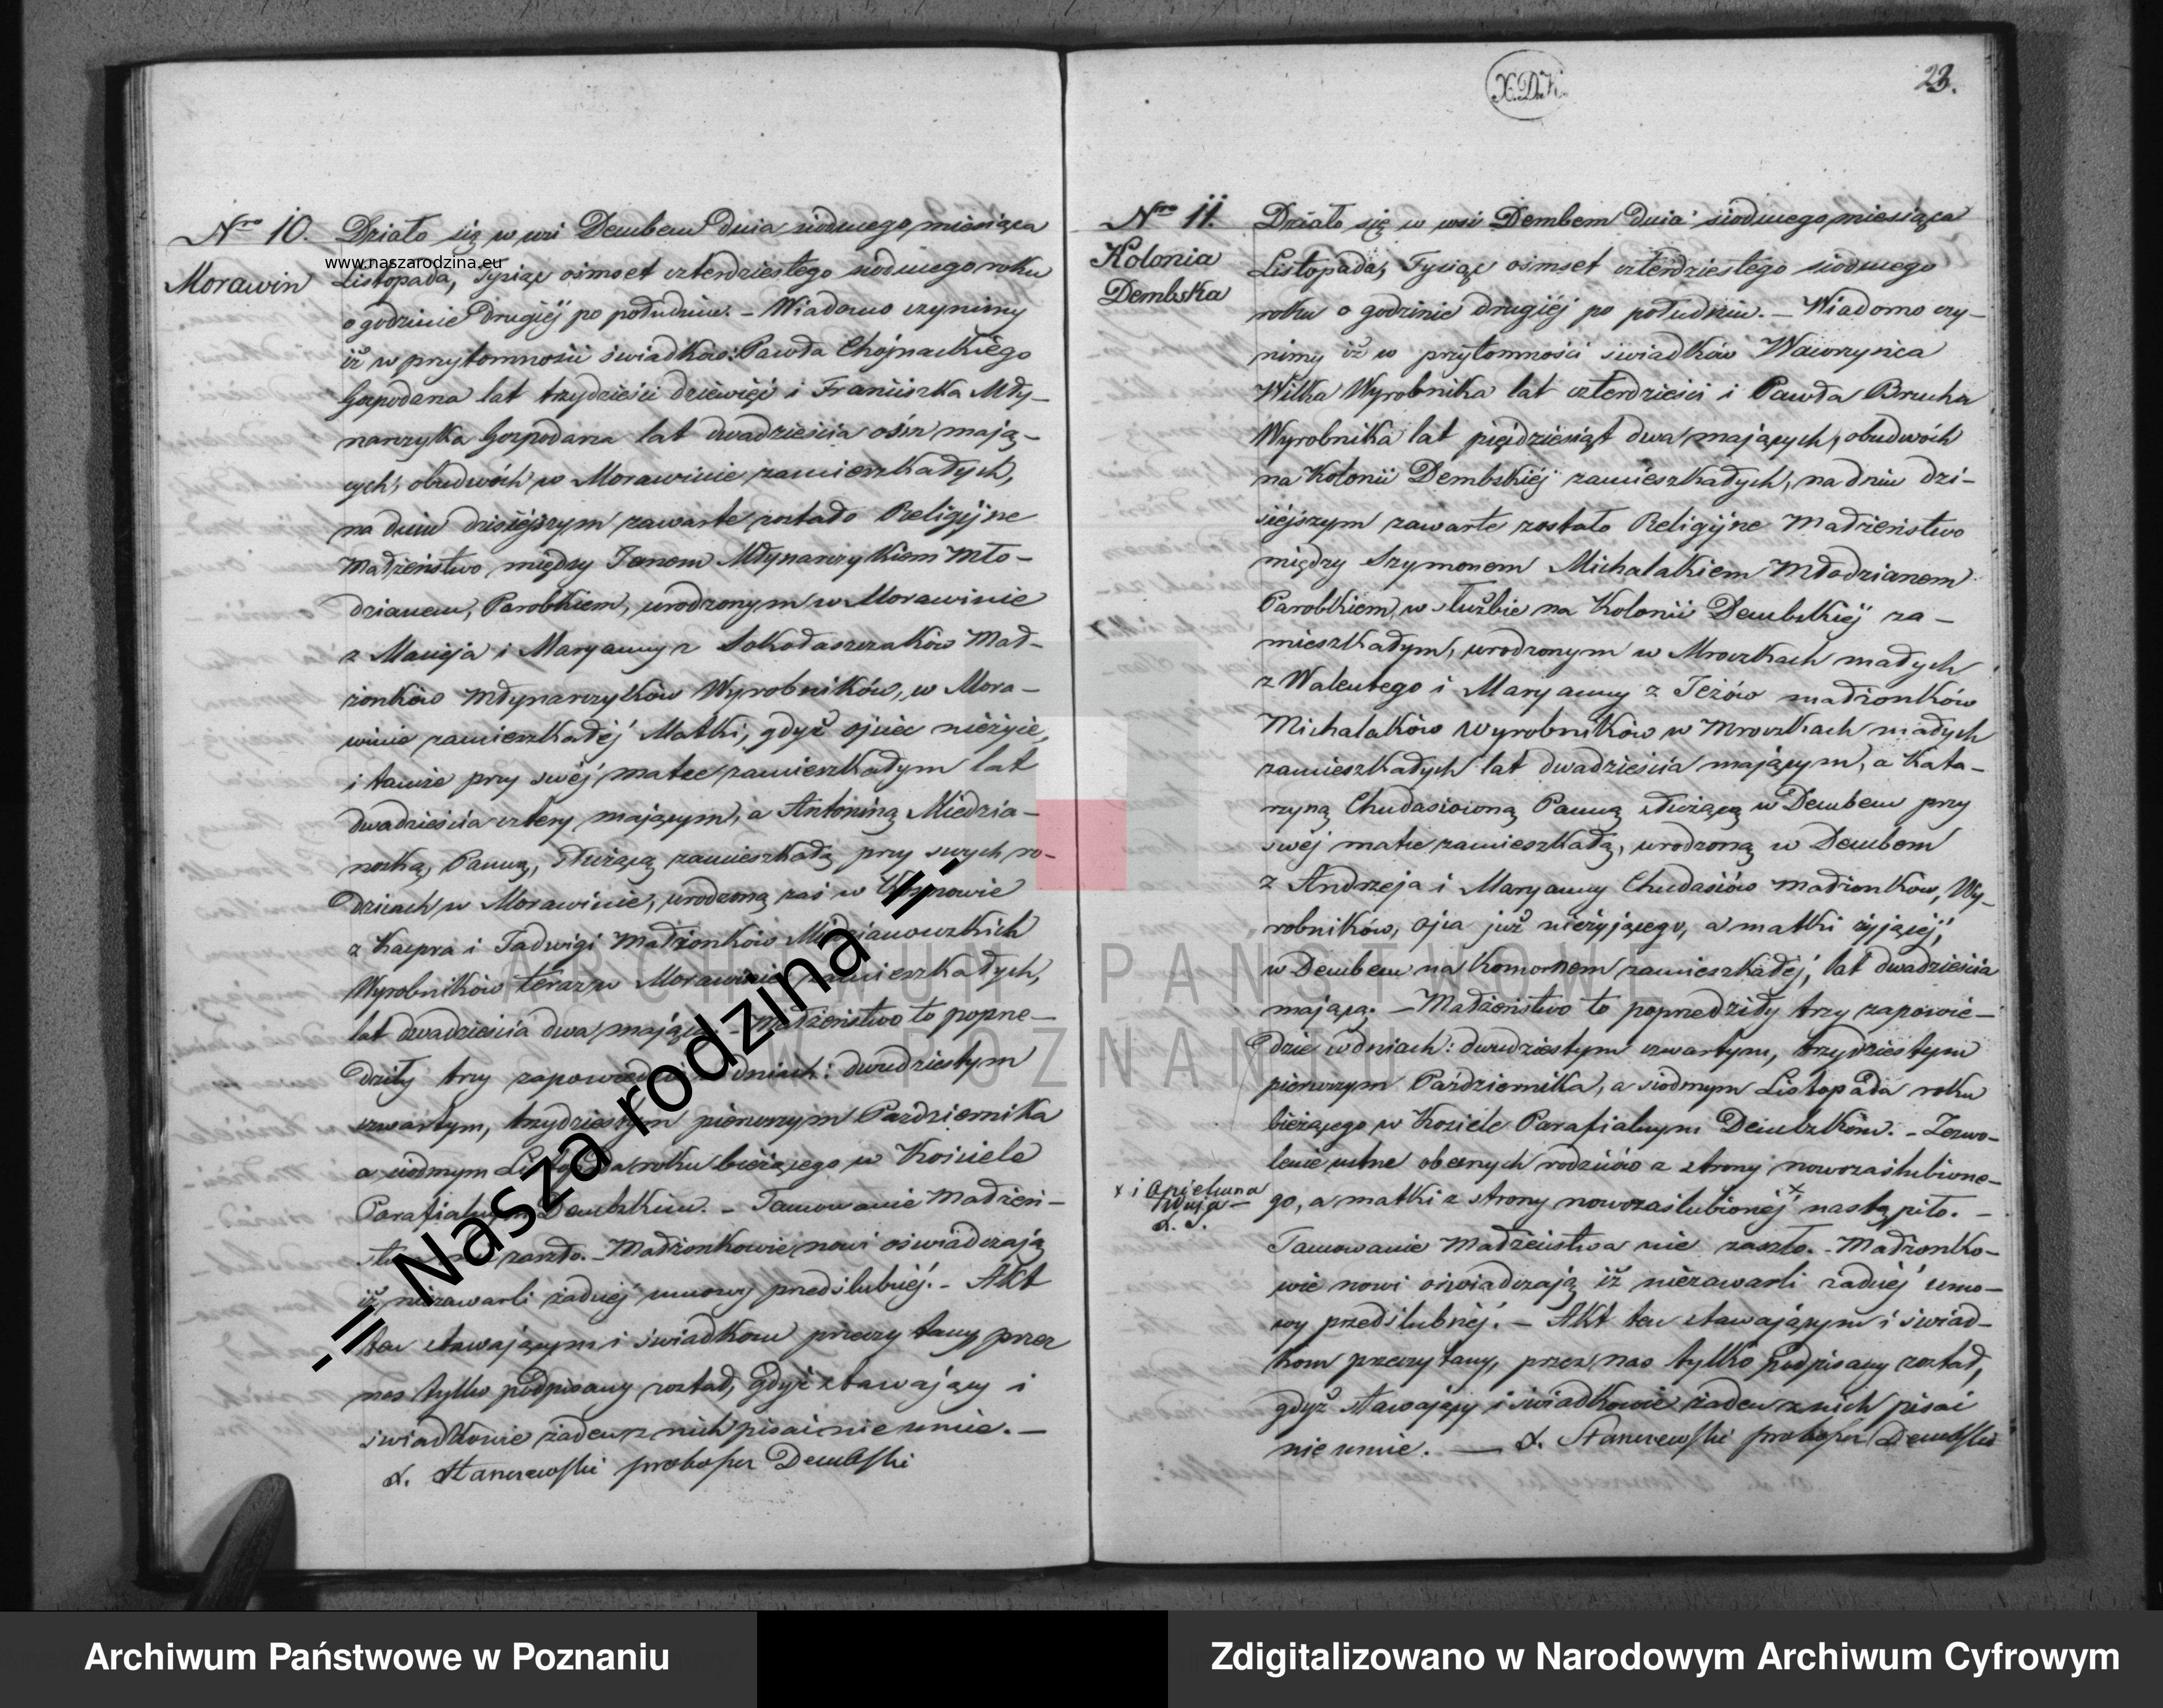 Nro 10.
Morawin
Działo się w wsi Dembem dnia siódmego miesiąca
www.naszarodzina.eu
Listopada, Tysiąc ośmset czterdziestego siódmego roku
o godzinie drugiéj po południu. – Wiadomo czynimy
iż w przytomności świadków: Pawła Chojnackiego
Gospodarza lat trzydzieści dziewięć i Franciszka Mły-
narczyka Gospodarza lat dwadzieścia ośm mają-
cych, obudwóch w Morawinie zamieszkałych,
na dniu dzisiéjszym zawarte zostało Religijne
Małżeństwo między Janem Młynarczykiem Mło-
dzianem, Parobkiem, urodzonym w Morawinie
z Macieja i Maryanny z Sokołaszczaków Mał-
żonków Młynarczyków Wyrobników, w Mora-
winie zamieszkałéj Matki, gdyż ojciec nieżyie,
i tamże przy swéj matce zamieszkałym lat
dwadzieścia cztery mającym, a Antoniną Miedzia-
noską, Panną, służącą zamieszkałą przy swych ro-
dzicach w Morawinie, urodzoną zaś w
z Kacpra i Jadwigi Małżonków Miedzianowskich
Wyrobników teraz w Morawinie zamieszkałych,
lat dwadzieścia dwa mającą. – Małżeństwo to poprze-
dziły trzy zapowiedzie w dniach: dwudziestym
czwartym, trzydziestym pierwszym Października
a siódmym Listopada roku bieżącego w Kościele
Parafialnym Dembskim. – Tamowanie Małżeń-
stwa nie zaszło. – Małżonkowie nowi oświadczają
iż niezawarli żadnéj umowy przedślubnéj. – Akt
ten stawającym i świadkom przeczytany przez
nas tylko podpisany został, gdyż stawający i
świadkowie żaden z nich pisać nie umie. –
X. Stanczewski proboszcz Dembski
-=Nasza rodzina=-
X.D.K.
23.
Nro 11.
Kolonia
Dembska
Działo się w wsi Dembem dnia siódmego miesiąca
Listopada, Tysiąc ośmset czterdziestego siódmego
roku o godzinie drugiéj po południu. – Wiadomo czy-
nimy iż w przytomności świadków Wawrzyńca
Wilka Wyrobnika lat czterdzieści i Pawła Brucha
Wyrobnika lat pięćdziesiąt dwa mających, obudwóch
na Kolonii Dembskiéj zamieszkałych, na dniu dzi-
siéjszym zawarte zostało Religijne Małżeństwo
między Szymonem Michalakiem Młodzianem
Parobkiem, w służbie na Kolonii Dembskiéj za-
mieszkałym, urodzonym w Mroczkach małych
z Walentego i Maryanny z Jeżów małżonków
Michalaków Wyrobników w Mroczkach małych
zamieszkałych lat dwadzieścia mającym, a Kata-
rzyną Chudasiowną Panną służącą w Dembem przy
swéj matce zamieszkałą, urodzoną w Dembem
z Andrzeja i Maryanny Chudasiów małżonków, Wy-
robników, ojca już nieżyjącego, a matki żyjącéj,
w Dembem na Komornem zamieszkałéj, lat dwadzieścia
mającą. – Małżeństwo to poprzedziły trzy zapowie-
dzie w dniach: dwudziestym czwartym, trzydziestym
pierwszym Października, a siódmym Listopada roku
bieżącego w Kościele Parafialnym Dembskim. – Zezwo-
lenie ustne obecnych rodziców z strony nowozaślubione-
x i Opiekuna
Wuja
X. S.
go, a matki z strony nowozaślubionéj x nastąpiło. –
Tamowanie Małżeństwa nie zaszło. – Małżonko-
wie nowi oświadczają iż niezawarli żadnéj umo-
wy przedślubnéj. – Akt ten stawającym i świad-
kom przeczytany, przez nas tylko podpisany został,
gdyż stawający i świadkowie żaden z nich pisać
nie umie. — X. Stanczewski proboszcz Dembski
ARCHIWUM PAŃSTWOWE
W POZNANIU
Archiwum Państwowe w Poznaniu
Zdigitalizowano w Narodowym Archiwum Cyfrowym